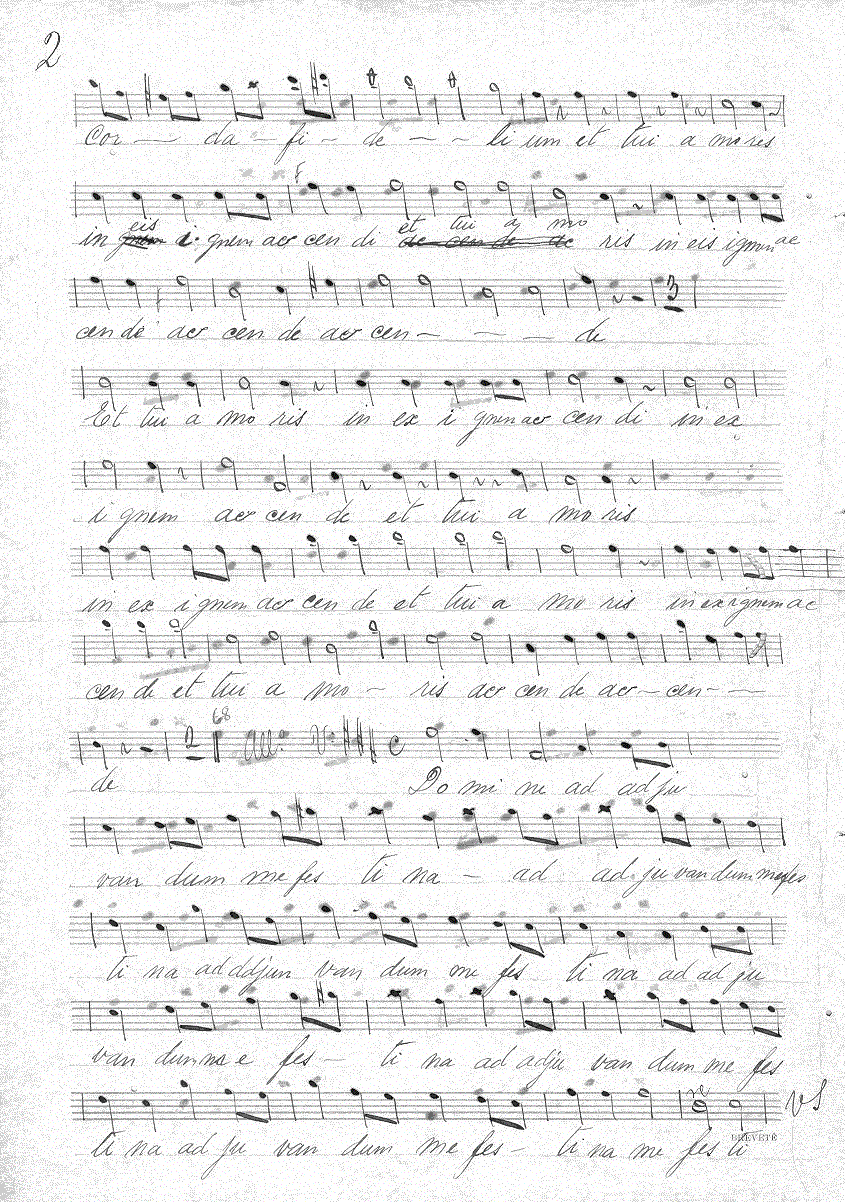 2
Cor — da — fi — de — — li um et tui a mo ris
et tui a mo
in eis i gnem ac cen di ris in eis ignem ac
cen de ac cen de ac cen — — — de
3
Et tui a mo ris in ex i gnem ac cen di in ex
i gnem ac cen de et tui a mo ris
in ex i gnem ac cen de et tui a mo ris in ex ignem ac
cen de et tui a mo — ris ac cen de ac — cen — —
2 68 All° C
de Do mi ne ad adju
van dum me fes ti na — ad ad ju van dum me fes
ti na ad adjun van dum me fes ti na ad ad ju
van dum me fes — ti na ad adju van dum me fes
VS
ti na ad ju van dum me fes — ti na me fes ti
BREVETÉ